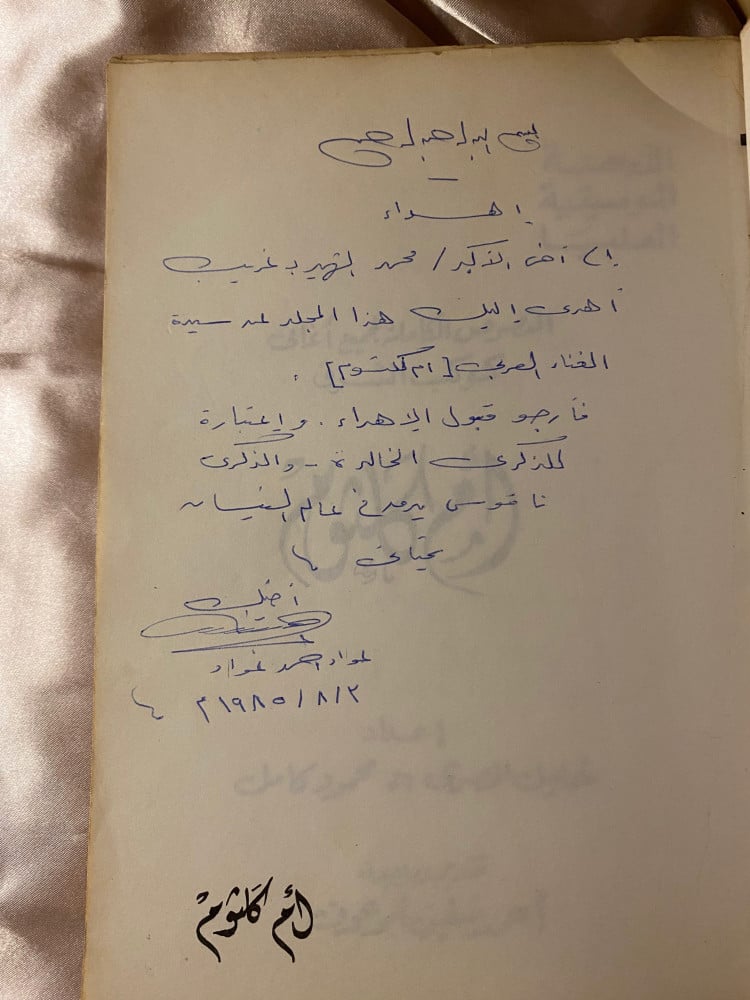 بسم الله الرحمن الرحيم
إهداء
إلى أخي الأكبر / محمد غريب
أهدى إليك هذا المجلد عن سيدة
الغناء العربي [أم كلثوم] .
فأرجو قبول الإهداء . وإعتبارة
للذكرى الخالدة - والذكرى
ناقوس يدق في عالم النسيان
تحياتى
أخيك
عواد احمد عواد
١٩٨٥/٨/٢م
أم كلثوم